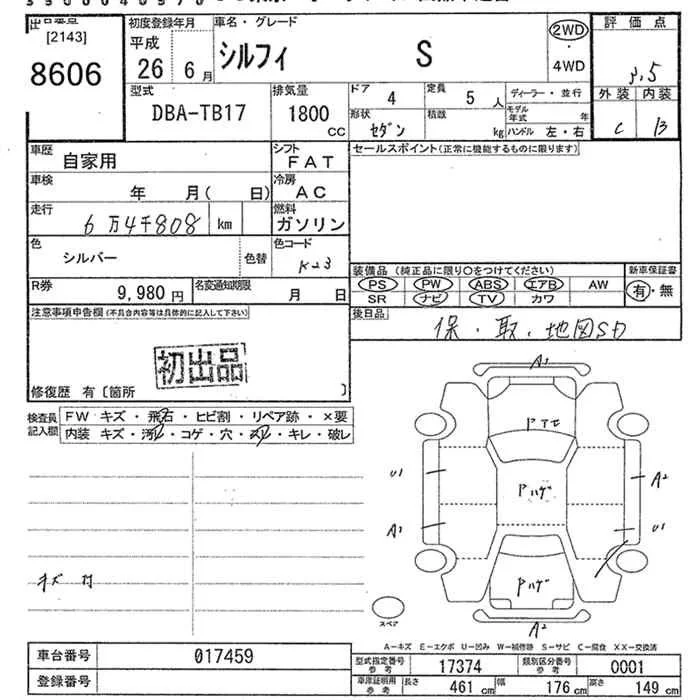 [2143]
8606
初度登録年月
平成
26 6月
車名・グレード
シルフィ S
2WD
・
4WD
評価点
3.5
外装 内装
C B
型式
DBA-TB17
排気量
1800
CC
ドア 4
定員 5 人
形状 セダン
積載 kg
ディーラー・並行
モデル年式 年
ハンドル 左・右
車歴 自家用
シフト
FAT
車検 年 月( 日)
冷房
AC
走行 6万4千808 km
燃料
ガソリン
色 シルバー 色替
色コード
K23
R券 9,980円
名変通知期限 月 日
セールスポイント(正常に機能するものに限ります)
装備品 (純正品に限り○をつけてください)
PS PW ABS エアB AW
SR ナビ TV カワ
新車保証書
有・無
後日品
保・取・地図SD
注意事項申告欄(不具合内容等は具体的に記入して下さい)
初出品
修復歴 有〔箇所 〕
検査員記入欄
FW キズ・飛石・ヒビ割・リペア跡・×要
内装 キズ・汚れ・コゲ・穴・スレ・キレ・破レ
キズ 付
A1
Pアセ
U1
Pハゲ
A2
A1
U1
Pハゲ
A2
スペア
A－キズ E－エクボ U－凹み W－補修跡 S－サビ C－腐食 XX－交換済
車台番号 017459
登録番号
型式指定番号 参考 17374
類別区分番号 参考 0001
車庫証明用 参考 長さ 461 cm 幅 176 cm 高さ 149 cm